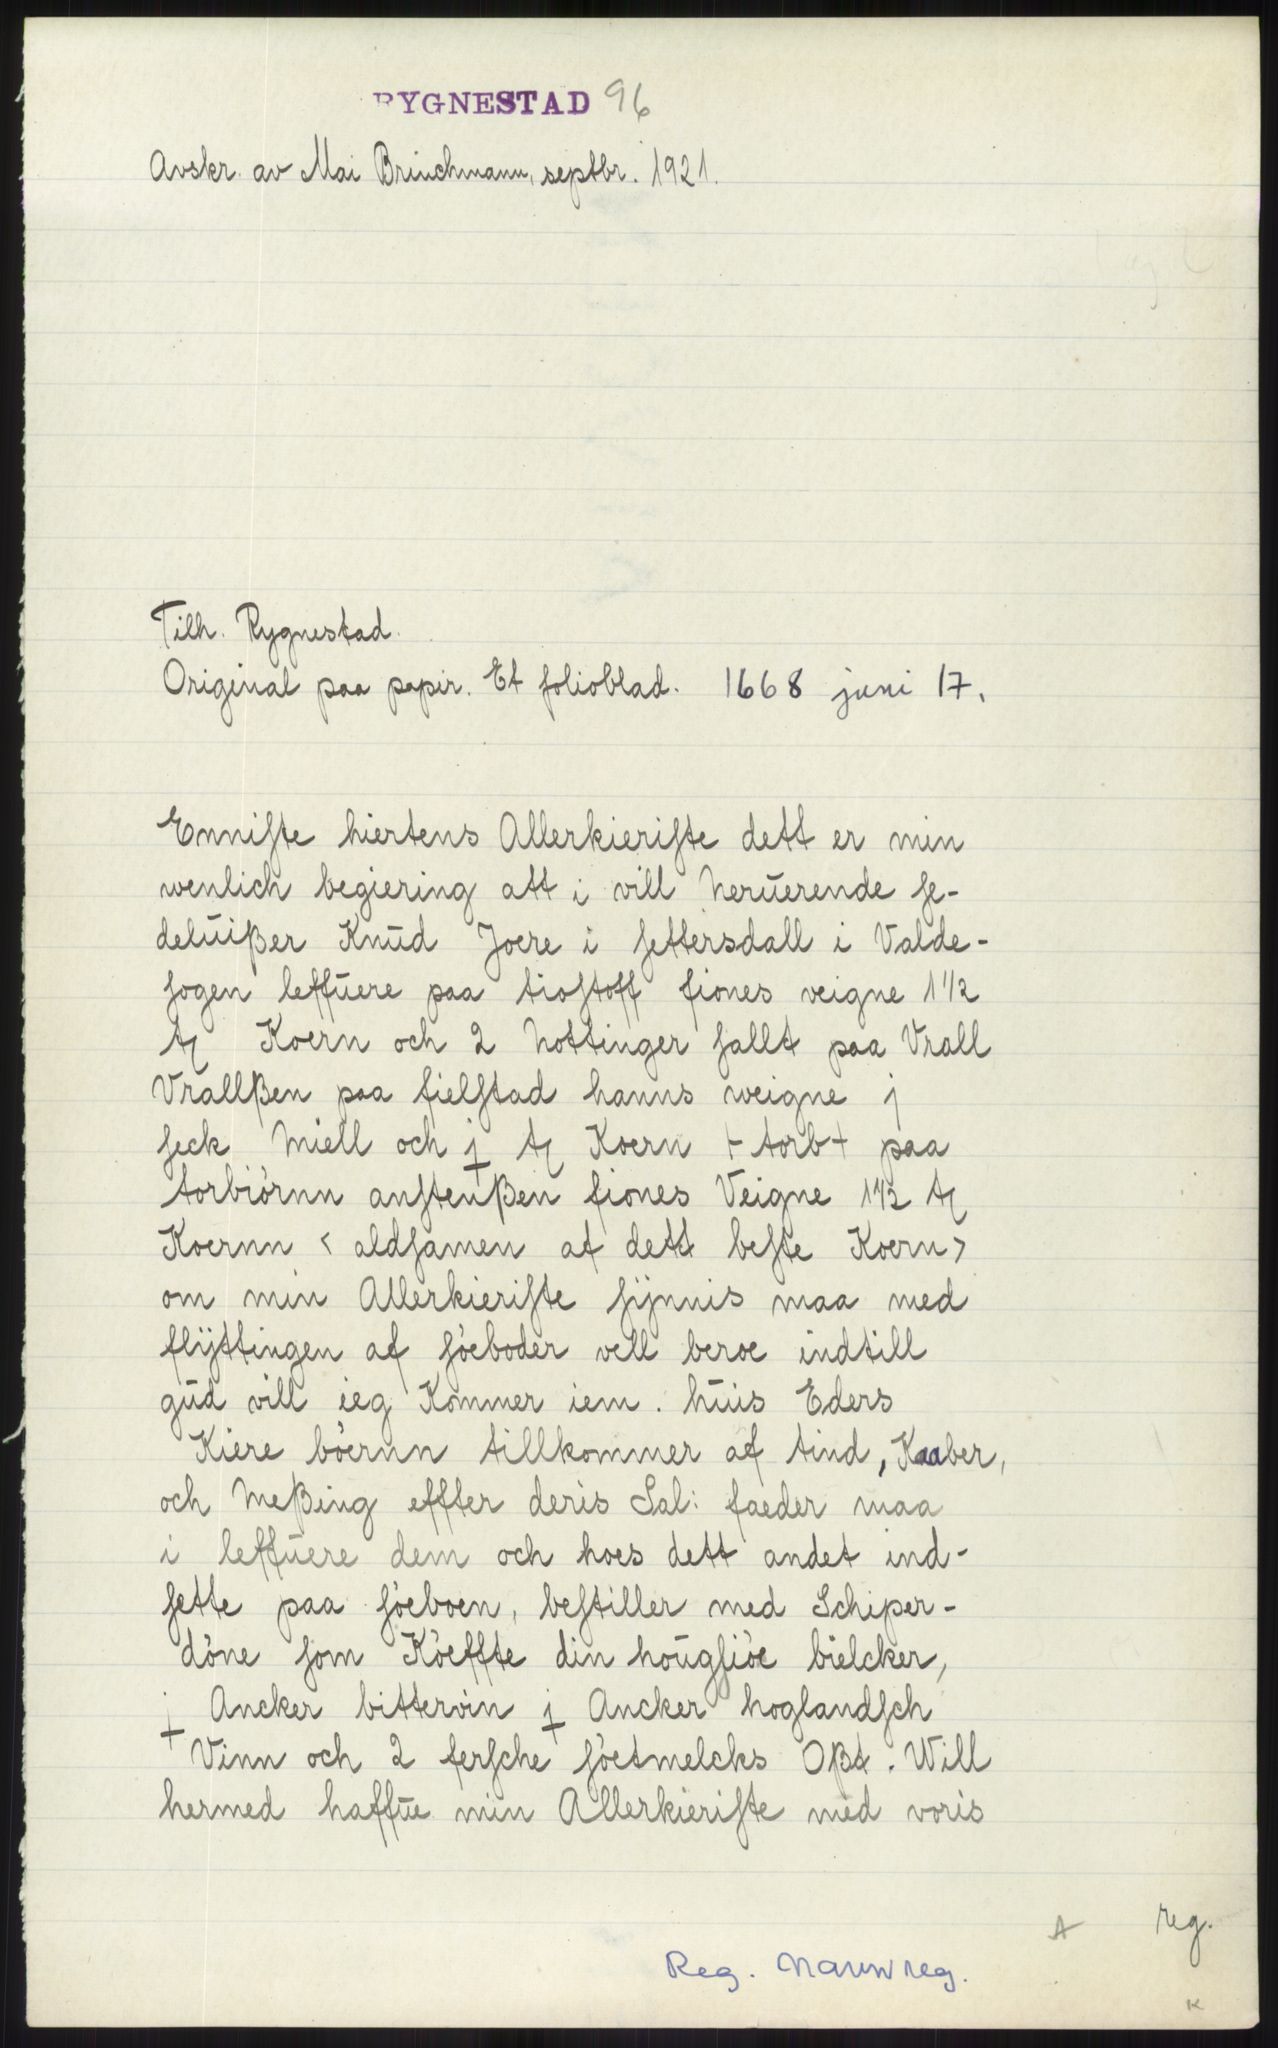 RYGNESTAD 96
Avskr. av Mai Brinchmann, septbr. 1921.
Tilh. Rygnestad.
Original paa papir. Et folioblad. 1668 juni 17.
Enniſte hiertens Allerkieriſte dett er min
wenlich begiering att i vill Neruerende ſe-
deluißer Knud Joere i ſettersdall i Valde-
ſogen leffuere paa tioſtoff fiones veigne 1 1/2
Koern och 2 Nottinger ſallt paa Vrall
Vrallßen paa fielſtad hanns weigne j
ſeck Miell och j Koern + torb + paa
torbiörnn anſtenßen fiones Veigne 1 1/2
Koernn < aldſamen af dett beſte Koern >
om min Allerkieriſte ſijnnis maa med
flÿttingen af ſöeboder vell beroe indtill
gud vill ieg Kommer iem. huis Eders
Kiere böernn tillkommer af tind, Kaaber,
och Meßing effter deris Sal: faeder maa
i leffuere dem och hoes dett andet ind-
ſette paa ſöeboen, beſtiller med Schiper-
döne ſom Köeffte din hougſiöe bielcker,
j Ancker bittervin j Ancker hoglandſch
Vinn och 2 ferſche ſöetmelcks Oßt. Will
hermed haffue min Allerkieriſte med voris
A reg.
Reg. Navnreg.
K